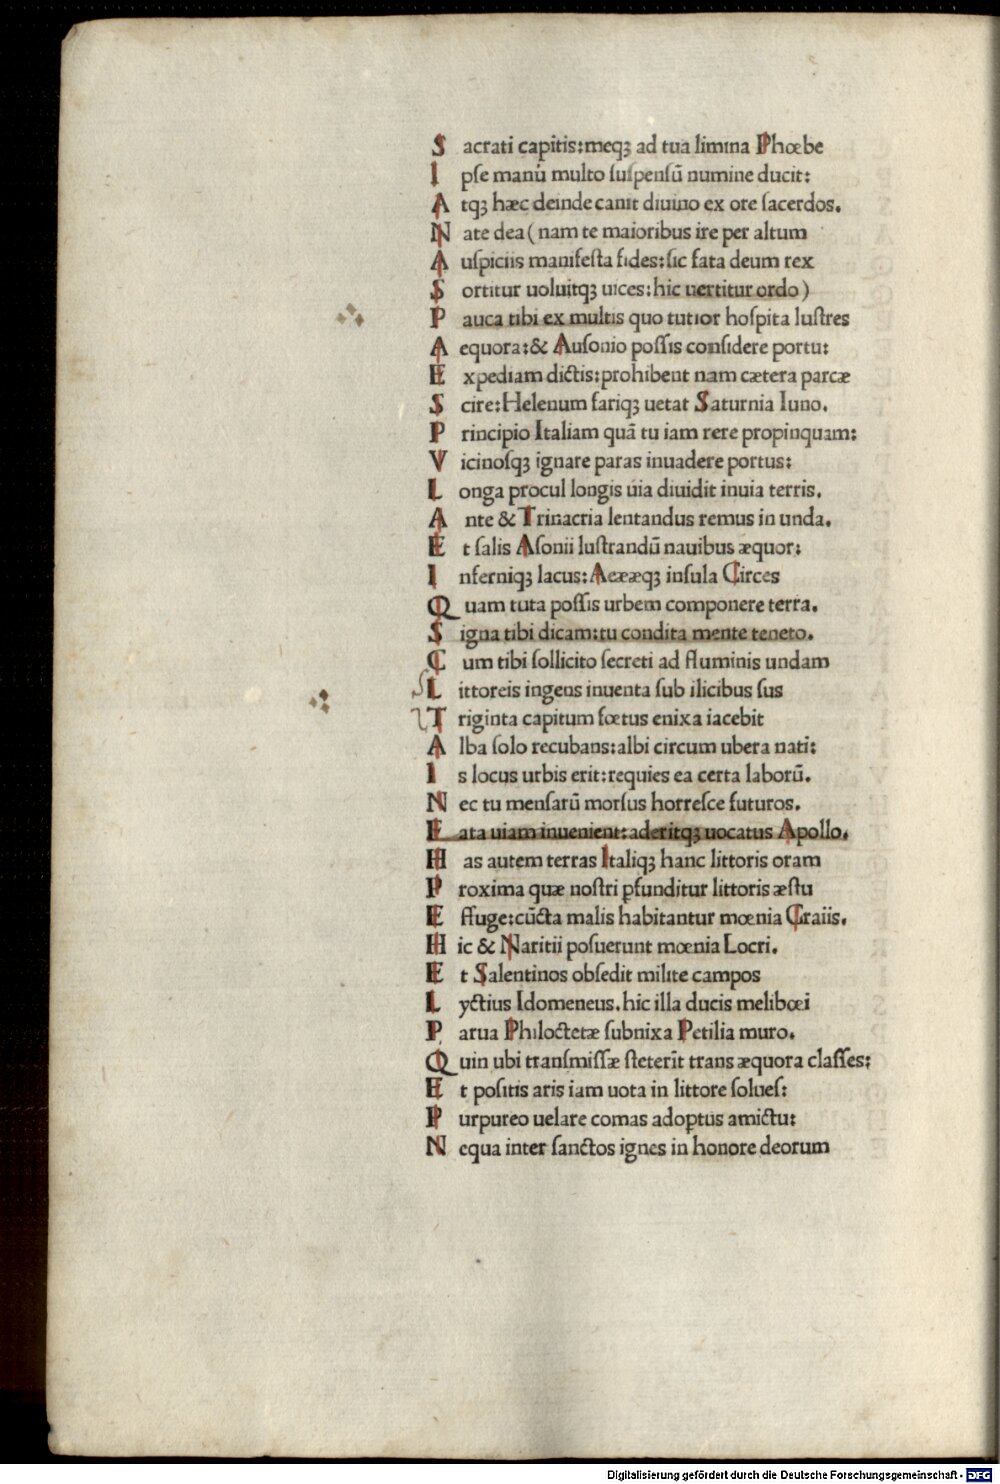 S acrati capitis:meqꝫ ad tua limina Phœbe
I pſe manu multo ſuſpenſū numine ducit:
A tqꝫ hæc deinde canit diuino ex ore ſacerdos.
N ate dea (nam te maioribus ire per altum
A uſpiciis manifeſta fides:ſic fata deum rex
S ortitur uoluitqꝫ uices:hic uertitur ordo)
P auca tibi ex multis quo tutior hoſpita luſtres
A equora:& Auſonio poſſis conſidere portu:
E xpediam dictis:prohibent nam cætera parcæ
S cire:Helenum fariqꝫ uetat Saturnia Iuno.
P rincipio Italiam quā tu iam rere propinquam:
V icinoſqꝫ ignare paras inuadere portus:
L onga procul longis uia diuidit inuia terris.
A nte & Trinacria lentandus remus in unda.
E t ſalis Aſonii luſtrandū nauibus æquor:
I nferniqꝫ lacus:Aeææqꝫ inſula Circes
Q uam tuta poſſis urbem componere terra.
S igna tibi dicam:tu condita mente teneto.
C um tibi ſollicito ſecreti ad fluminis undam
L ittoreis ingens inuenta ſub ilicibus ſus
T riginta capitum fœtus enixa iacebit
A lba ſolo recubans:albi circum ubera nati:
I s locus urbis erit:requies ea certa laborū.
N ec tu menſarū morſus horreſce futuros.
F ata uiam inuenient:aderitqꝫ uocatus Apollo.
H as autem terras Italiqꝫ hanc littoris oram
P roxima quæ noſtri ꝑfunditur littoris æſtu
E ffuge:cūcta malis habitantur mœnia Graiis.
H ic & Naritii poſuerunt mœnia Locri.
E t Salentinos obſedit milite campos
L yctius Idomeneus.hic illa ducis melibœi
P arua Philoctetæ ſubnixa Petilia muro.
Q uin ubi tranſmiſſæ ſteterīt trans æquora claſſes:
E t poſitis aris iam uota in littore ſolueſ:
P urpureo uelare comas adoptus amictu:
N equa inter ſanctos ignes in honore deorum
Digitalisierung gefördert durch die Deutsche Forschungsgemeinschaft - DFG